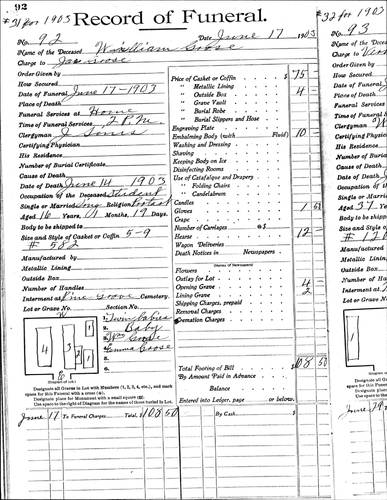 92
#31 for 1903
Record of Funeral.
No. 92 Date June 17 1903
Name of the Deceased William Goose
Charge to Jas Goose
Order Given by
How Secured
Date of Funeral June 17-1903
Place of Death
Funeral Services at Home
Time of Funeral Services 2 P.M.
Clergyman J
Certifying Physician
His Residence
Number of Burial Certificate
Cause of Death
Date of Death June 14 1903
Occupation of the Deceased Student
Single or Married Sing Religion
Aged 16 Years, 11 Months, 19 Days.
Body to be shipped to
Size and Style of Casket or Coffin 5-9
# 582
Manufactured by
Metallic Lining
Outside Box
Number of Handles
Interment at Pine Grove Cemetery.
Lot or Grave No. Section No.
W
1. Twin babies
2. Baby
3. Wm Goose
4. Emma Goose
5.
6.
(Diagram of Lot.)
Designate all Graves in Lot with Numbers (1, 2, 3, 4, etc.), and mark
space for this Funeral with a cross (x).
Designate place for Monument with a small square (□).
Use space to the right of Diagram for the names of those buried in Lot.
Price of Casket or Coffin $ 75
" Metallic Lining
" Outside Box 4
" Grave Vault
" Burial Robe
" Burial Slippers and Hose
Engraving Plate
Embalming Body (with Fluid) 10
Washing and Dressing
Shaving
Keeping Body on Ice
Disinfecting Rooms
Use of Catafalque and Drapery
" Folding Chairs
" Candelabrum
Candles
Gloves 1 50
Crape
Number of Carriages @ $
Hearse 12
Wagon Deliveries
Death Notices in Newspapers
(Names of Newspapers)
Flowers
Outlay for Lot
Opening Grave 4
Lining Grave 2
Shipping Charges, prepaid
Removal Charges
Cremation Charges
Total Footing of Bill $ 108 50
By Amount Paid in Advance
Balance
Entered into Ledger, page or below.
June 17 To Funeral Charges Total, $ 108 50 By Cash $
#32 for 1903
No. 93
Name of the
Charge to
Order Given
How Secured
Date of Fune
Place of Deat
Funeral Servi
Time of Fune
Clergyman
Certifying Ph
His Residen
Number of Bu
Cause of Death
Date of Death
Occupation of
Single or Mar
Aged 37 Yea
Body to be shi
Size and Style
Manufactured
Metallic Linin
Outside Box
Number of Ha
Interment at
Lot or Grave N